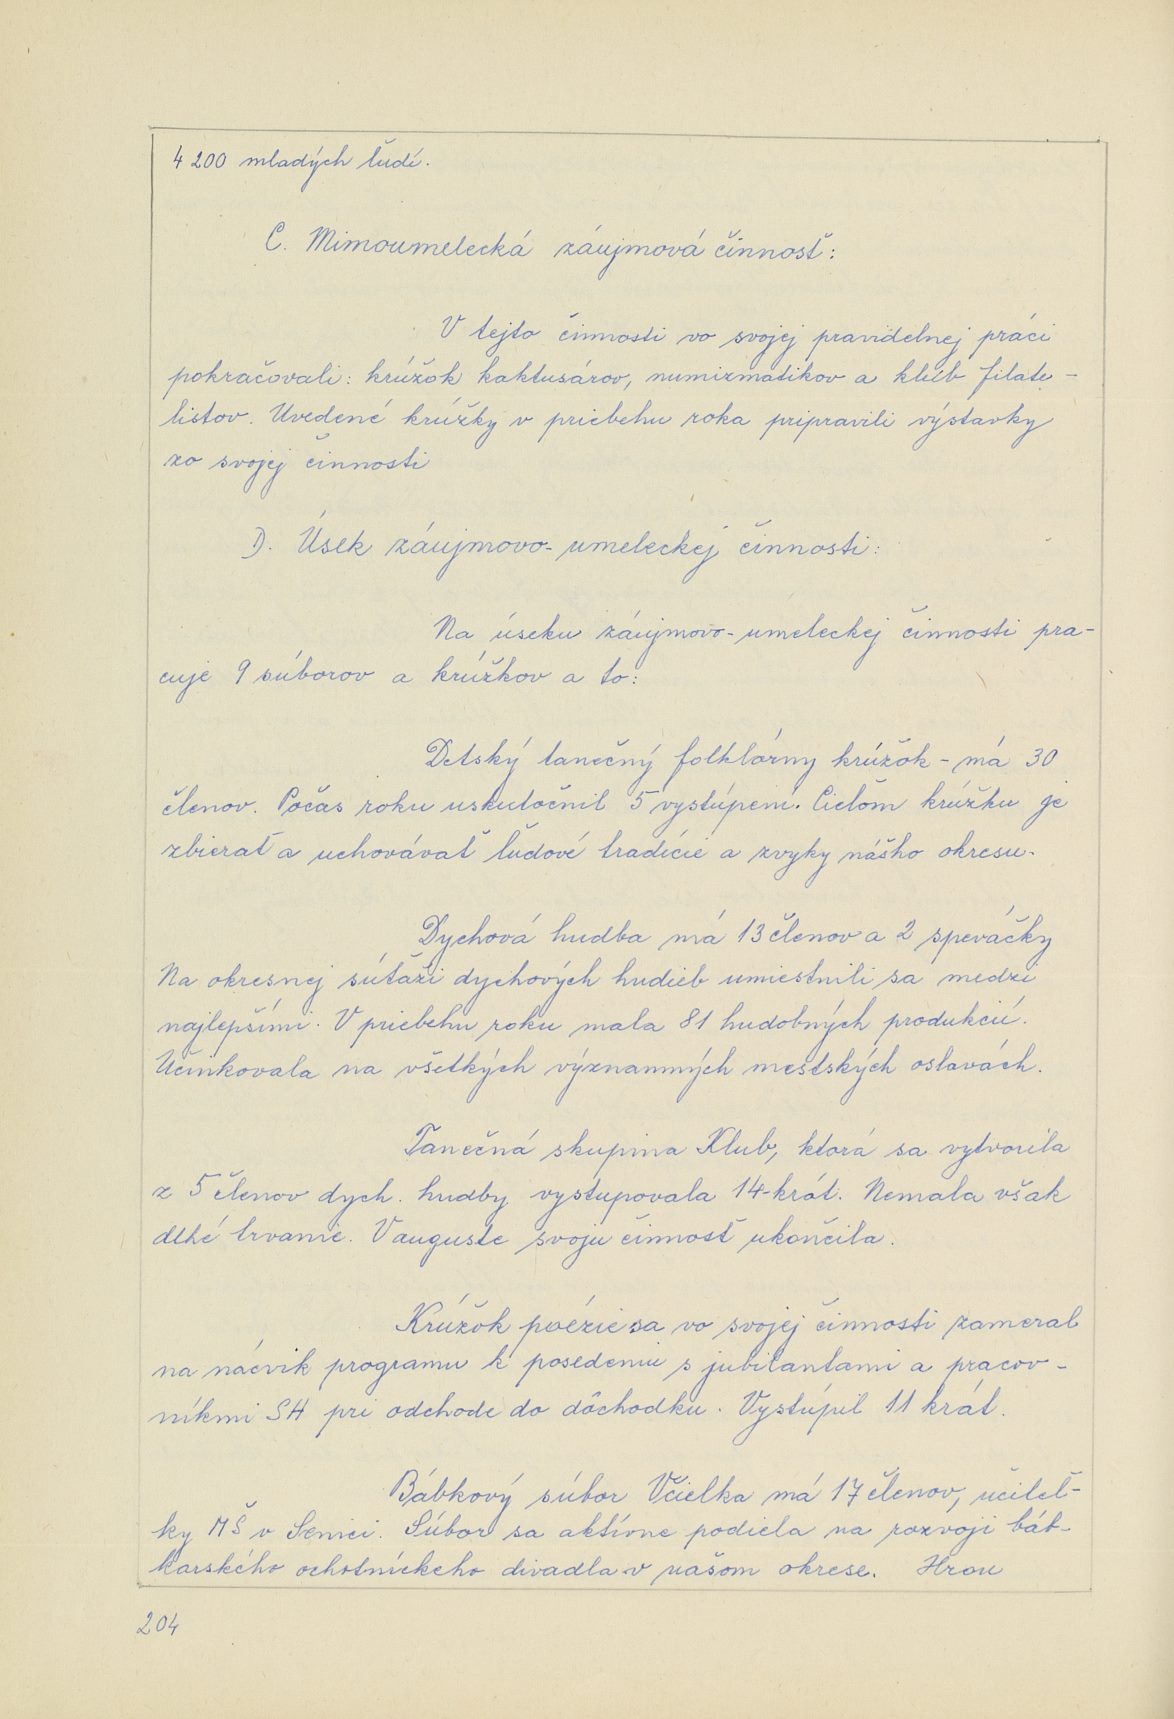 4 200 mladých ľudí.
C. Mimoumelecká záujmová činnosť:
V tejto činnosti vo svojej pravidelnej práci
pokračovali: krúžok kaktusárov, numizmatikov a klub filate-
listov. Uvedené krúžky v priebehu roka pripravili výstavky
zo svojej činnosti
D. Úsek záujmovo-umeleckej činnosti:
Na úseku záujmovo-umeleckej činnosti pra-
cuje 9 súborov a krúžkov a to:
Detský tanečný folklórny krúžok - má 30
členov. Počas roku uskutočnil 5 vystúpení. Cieľom krúžku je
zbierať a uchovávať ľudové tradície a zvyky nášho okresu.
Dychová hudba má 13 členov a 2 speváčky
Na okresnej súťaži dychových hudieb umiestnili sa medzi
najlepšími. V priebehu roku mala 81 hudobných produkcií.
Účinkovala na všetkých významných mestských oslavách.
Tanečná skupina Klub, ktorá sa vytvorila
z 5 členov dych. hudby vystupovala 14-krát. Nemala však
dlhé trvanie. V auguste svoju činnosť ukončila.
Krúžok poézie sa vo svojej činnosti zameral
na nácvik programu k posedeniu s jubilantami a pracov-
níkmi SH pri odchode do dôchodku. Vystúpil 11 krát.
Bábkový súbor Včielka má 17 členov, učiteľ-
ky MŠ v Senici. Súbor sa aktívne podiela na rozvoji báb-
karského ochotníckeho divadla v našom okrese. Hrou
204